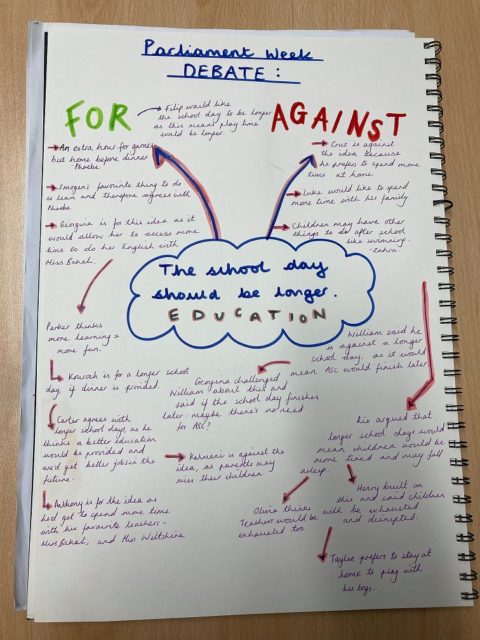 Parliament Week
DEBATE:
FOR
AGAINST
Filip would like
the school day to be longer
as this means play time
would be longer.
An extra hour for games
but home before dinner
- Phoebe
Imogen's favourite thing to do
is learn and therefore agrees with
Phoebe.
Georgina is for this idea as it
would allow her to access more
time to do her English with
Miss Bakah.
Cruz is against
the idea because
he prefers to spend more
time at home.
Luke would like to spend
more time with his family.
Children may have other
things to do after school
like swimming.
- Zahra.
The school day
should be longer.
EDUCATION
Parker thinks
more learning =
more fun.
is for a longer school
day if dinner is provided.
Carter agrees with
longer school days as he
thinks a better education
would be provided and
we'd get better jobs in the
future.
Anthony is for the idea as
he'd get to spend more time
with his favourite teachers -
Miss Bakah, and Miss Wiltshire
Georgina challenged
William about this and
said if the school day finishes
later - maybe there's no need
for ASC?
is against the
idea, as parents may
miss their children
William said he
is against a longer
school day. as it would
mean ASC would finish later.
argued that
longer school days would
mean children would be
more tired and may fall
asleep.
Olivia thinks
teachers would be
exhausted too.
Henry built on
this and said children
will be exhausted
and
Taylor prefers to stay at
home to play with
his toys.